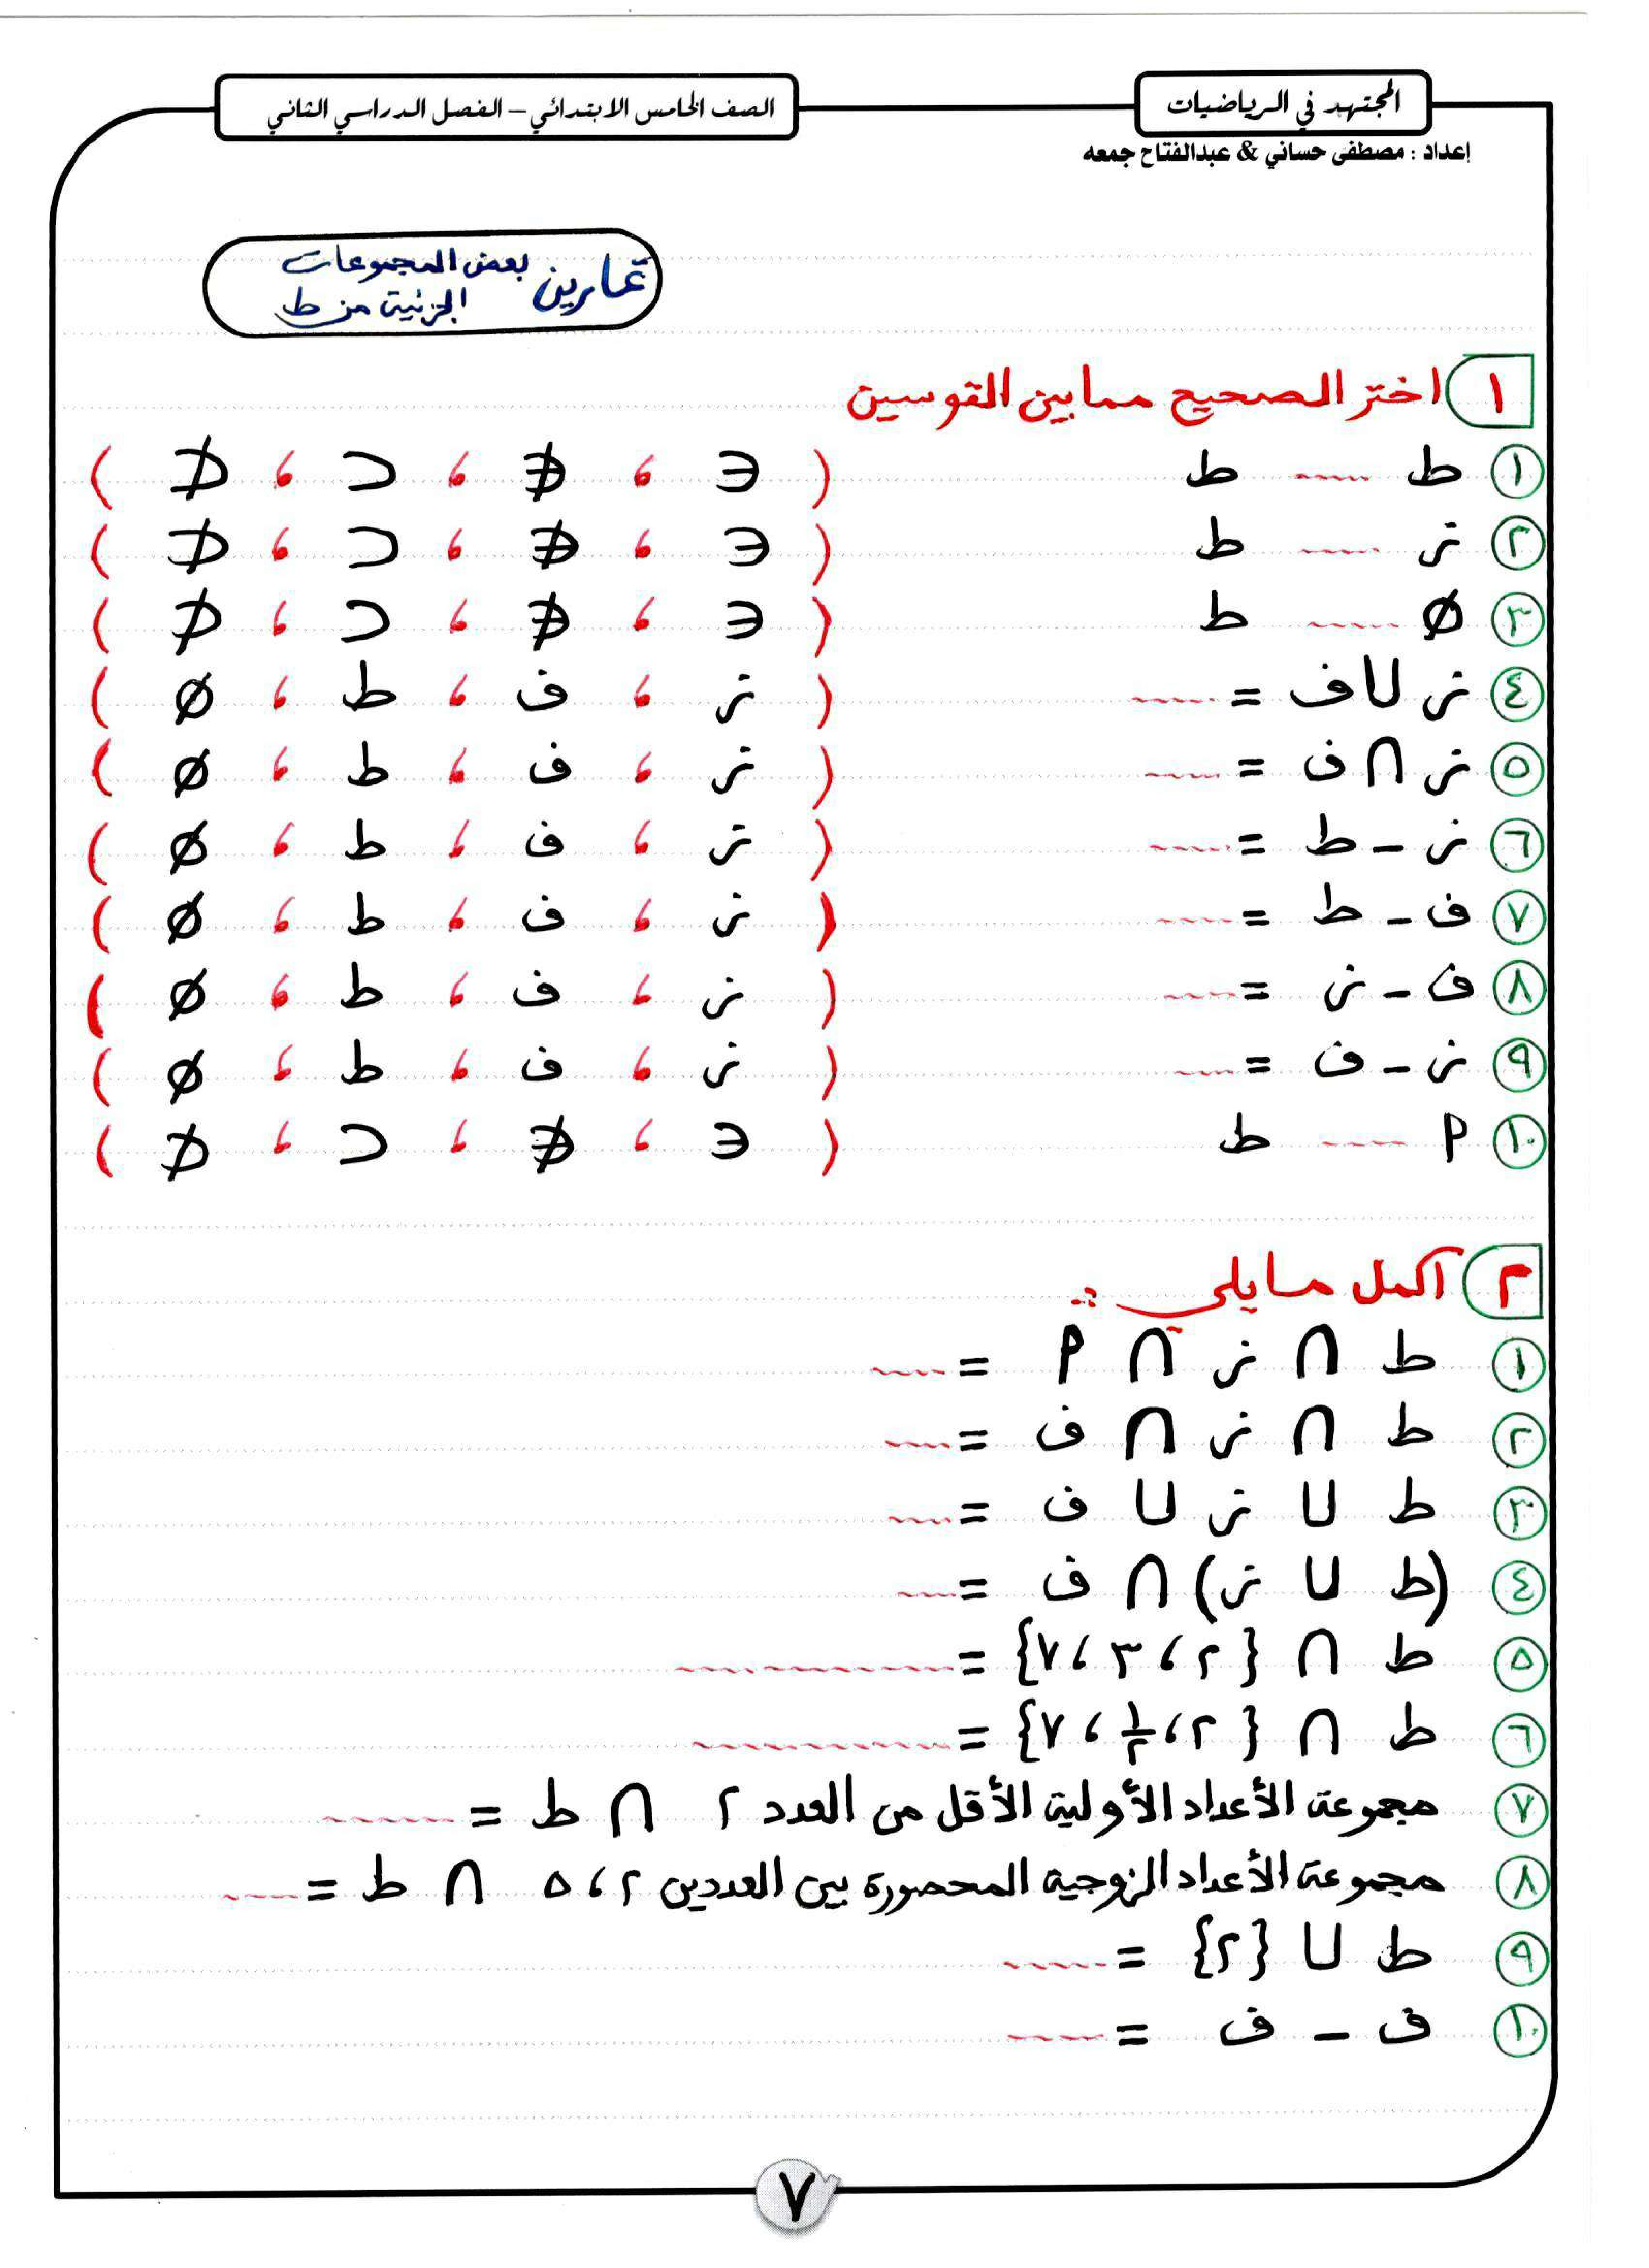 المجتهد في الرياضيات
الصف الخامس الابتدائي – الفصل الدراسي الثاني
إعداد : مصطفى حساني & عبدالفتاح جمعه
تمارين بعض المجموعات
الجزئية من ط
١ اختر الصحيح مما بين القوسين
١ ط ---- ط ( ∋ ، ∌ ، ⊃ ، ⊅ )
٢ ز ---- ط ( ∋ ، ∌ ، ⊃ ، ⊅ )
٣ Ø ---- ط ( ∋ ، ∌ ، ⊃ ، ⊅ )
٤ ز ∪ ف = ---- ( ز ، ف ، ط ، Ø )
٥ ز ∩ ف = ---- ( ز ، ف ، ط ، Ø )
٦ ز – ط = ---- ( ز ، ف ، ط ، Ø )
٧ ف – ط = ---- ( ز ، ف ، ط ، Ø )
٨ ف – ز = ---- ( ز ، ف ، ط ، Ø )
٩ ز – ف = ---- ( ز ، ف ، ط ، Ø )
١٠ م ---- ط ( ∋ ، ∌ ، ⊃ ، ⊅ )
٢ أكمل ما يلي :-
١ ط ∩ ز ∩ م = ----
٢ ط ∩ ز ∩ ف = ----
٣ ط ∪ ز ∪ ف = ----
٤ (ط ∪ ز) ∩ ف = ----
٥ ط ∩ {٢ ، ٣ ، ٧} = ----------
٦ ط ∩ {٢ ، ١/٢ ، ٧} = ----------
٧ مجموعة الأعداد الأولية الأقل من العدد ٢ ∩ ط = ------
٨ مجموعة الأعداد الزوجية المحصورة بين العددين ٢ ، ٥ ∩ ط = ----
٩ ط ∪ {٢} = -----
١٠ ف – ف = -----
٧